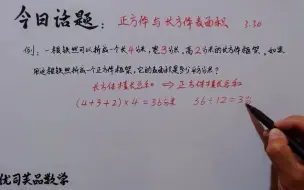 今日话题：正方体与长方体表面积 2.30
例：一根铁丝可以折成一个长4分米，宽3分米，高2分米的长方体框架。如果
用这根铁丝折成一个正方体框架，它的表面积是多少平方分米？
长方体棱长总和 ⇒ 正方体棱长总和
(4+3+2)×4=36分米 36÷12=3
优司芙品数学